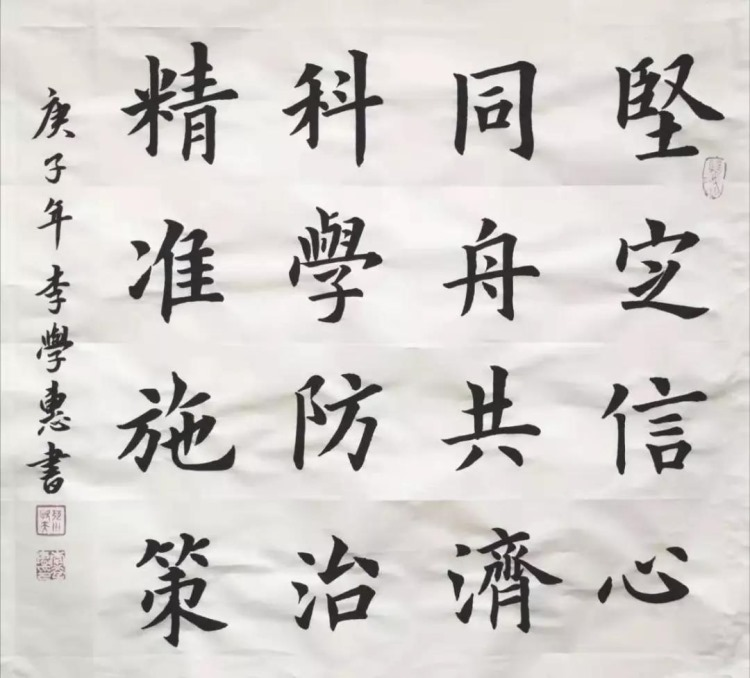 堅定信心
同舟共濟
科學防治
精准施策
庚子年李學惠書